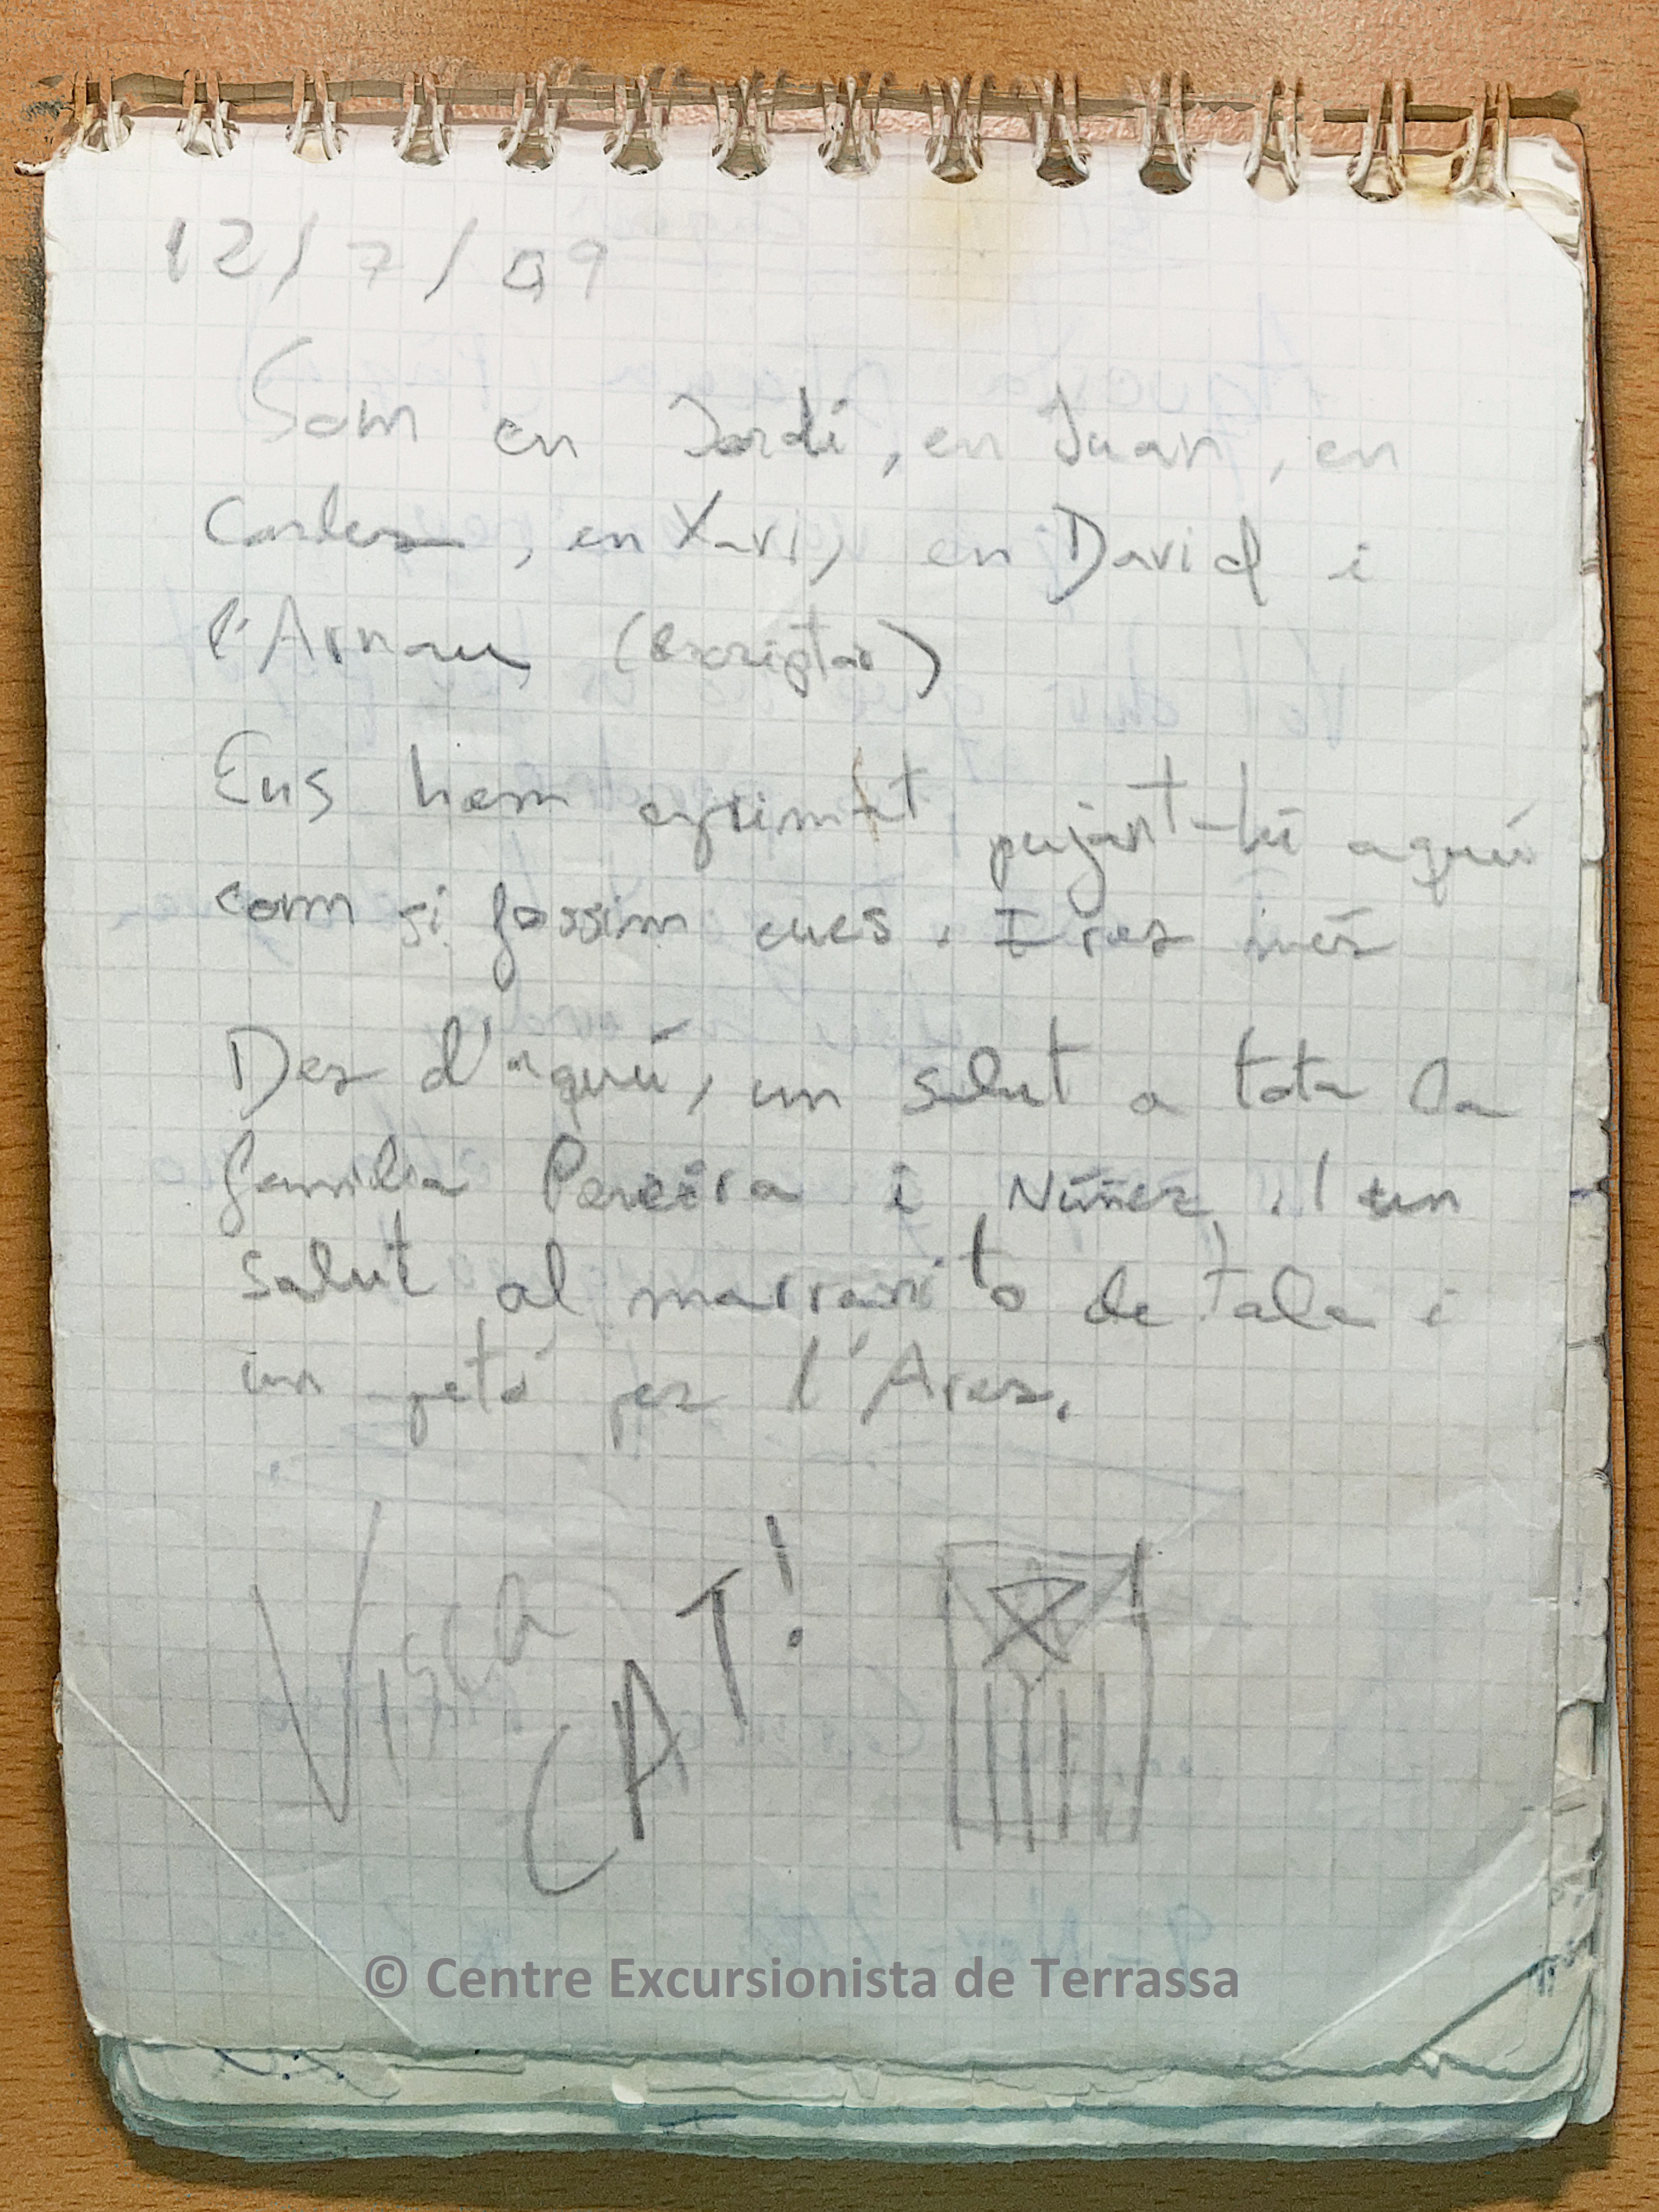 12/7/09
Som en Jordi, en Juan, en
Carles, en Xavi, en David i
l'Arnau (escriptor)
Ens hem esprimat pujant-hi aquí
com si fossim cucs. I res més
Des d'aquí, un salut a tota la
familia Pereira i Núñez, i un
salut al marranito de Tala i
un petó per l'Ares.
Visca
CAT!
© Centre Excursionista de Terrassa